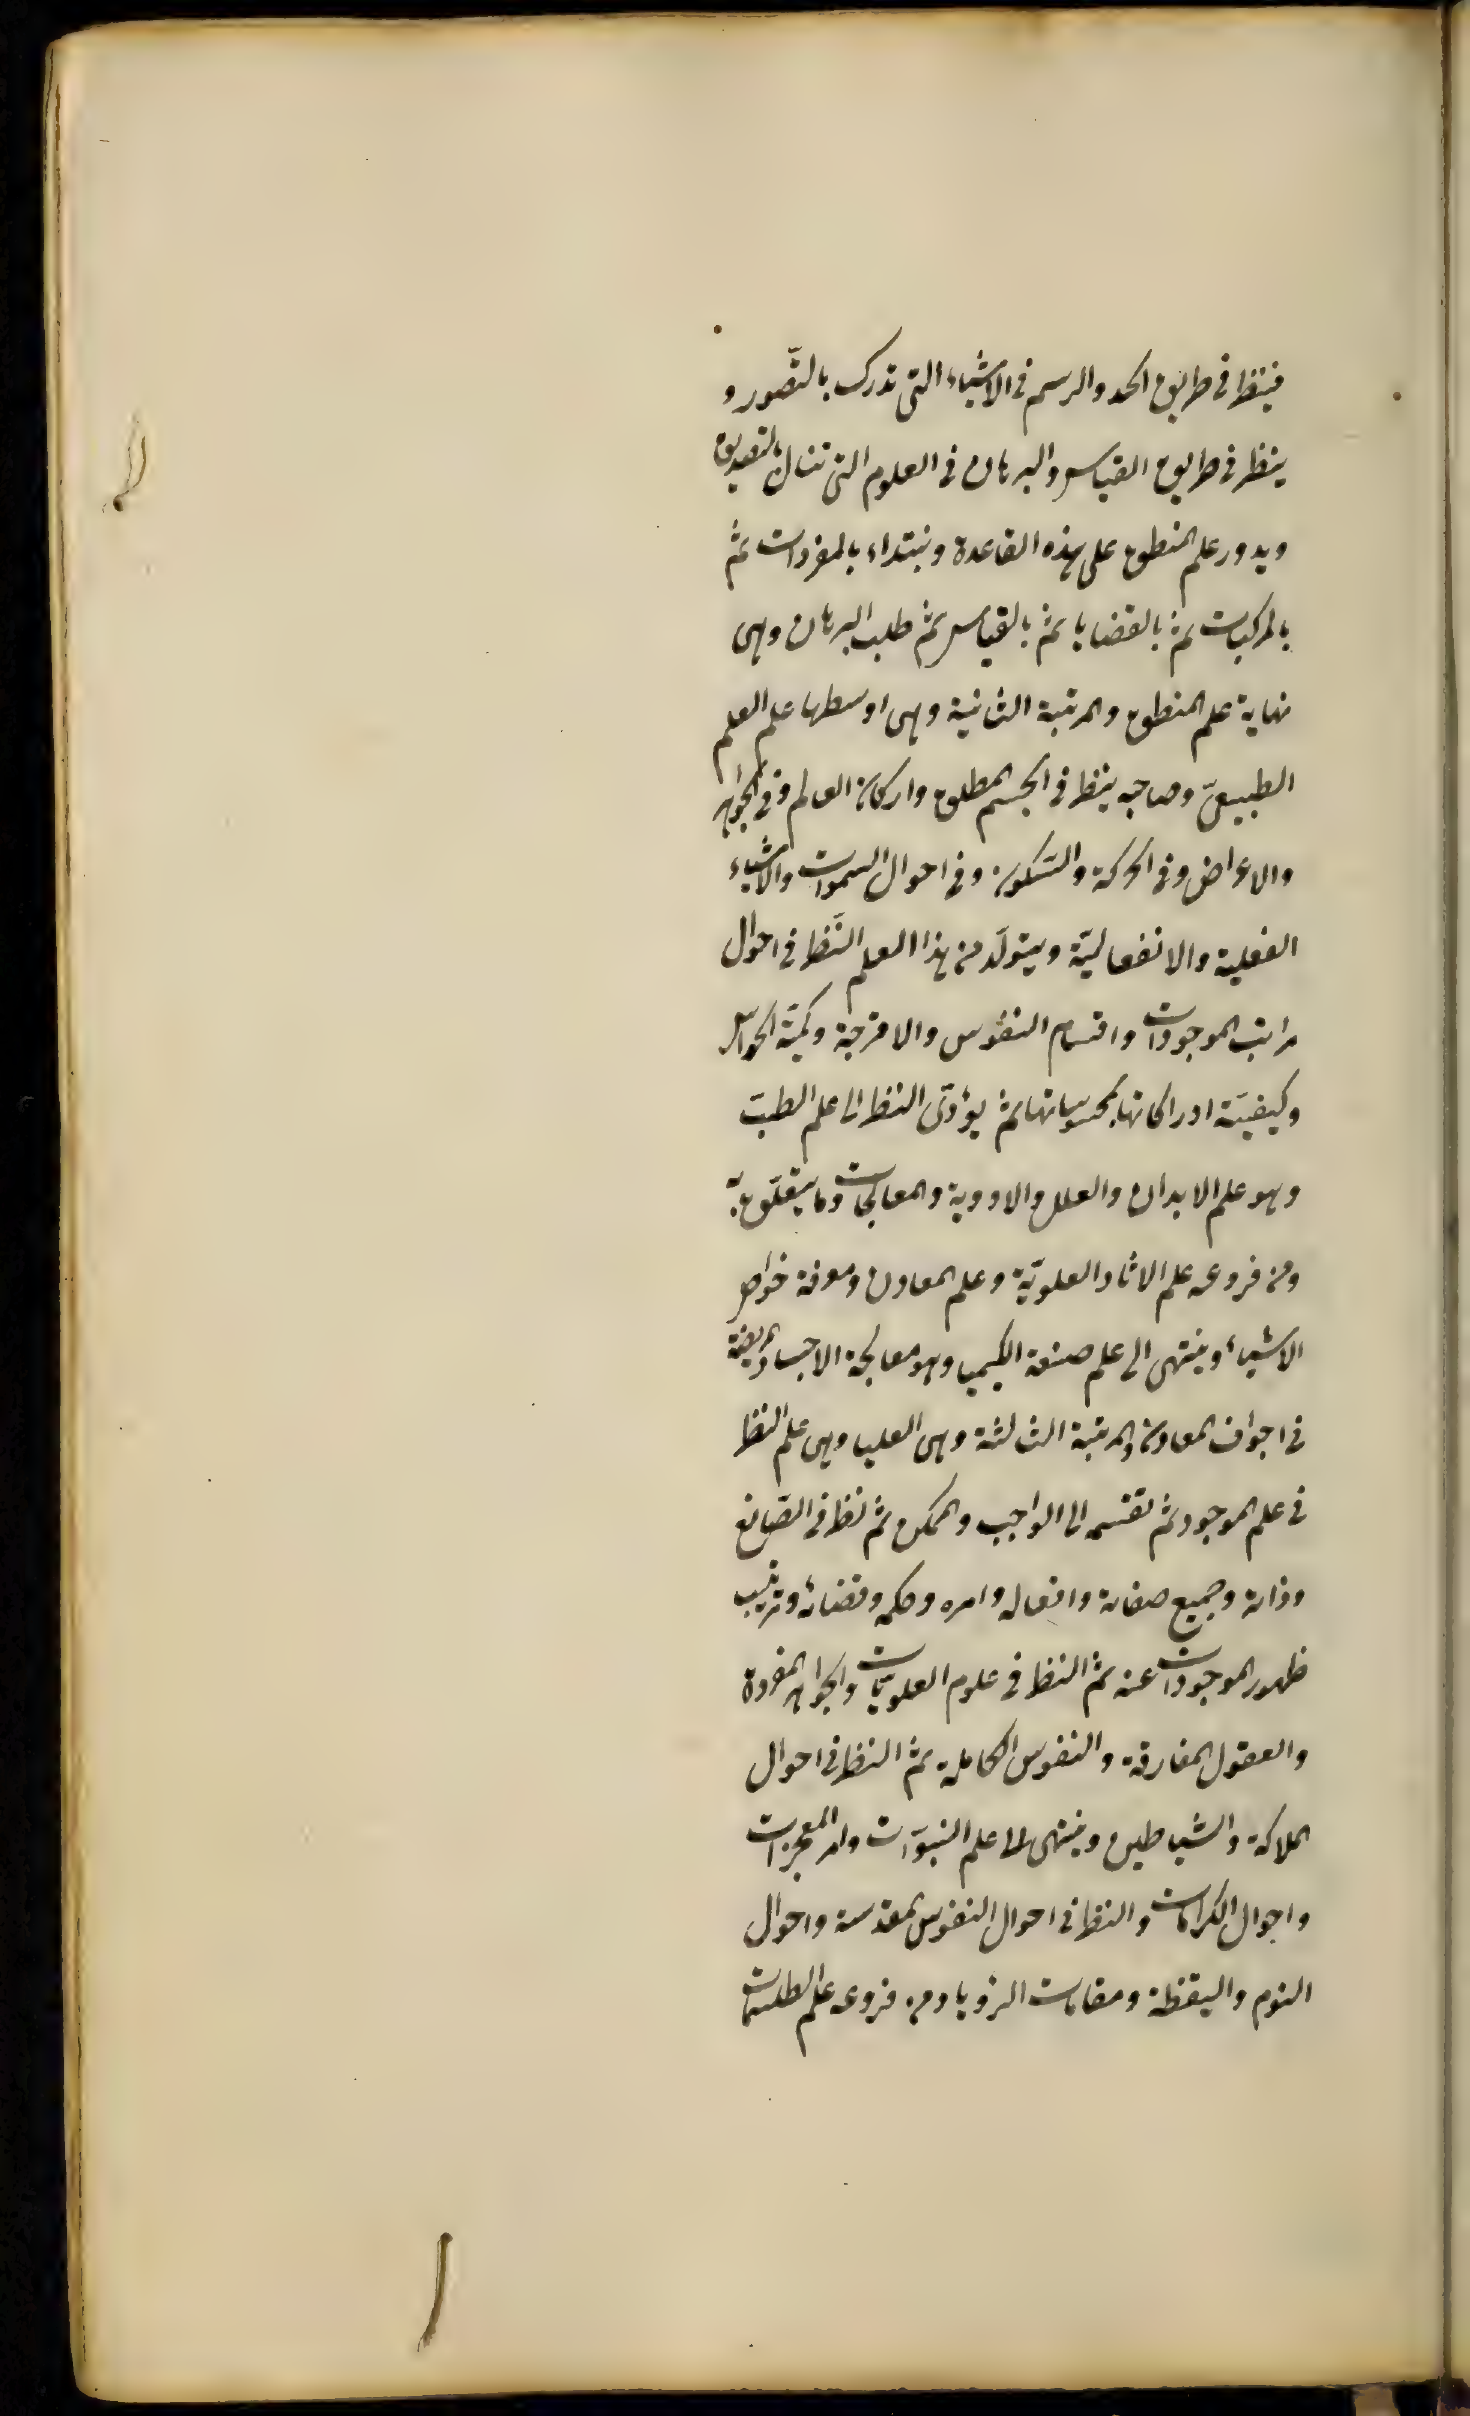 فينظر فى طريق الحد والرسم فى الاشياء التى تدرك بالتّصور و
ينظر فى طريق القياس والبرهان فى العلوم التى تنال بالتصديق
ويدور علم المنطق على هذه القاعدة وينتداء بالمفردات ثم
بالمركبات ثم بالقضايا ثم بالقياس ثم طلب البرهان وهى
نهاية علم المنطق والمرتبة الثانية وهى اوسطها علم العلم
الطبيعىّ وصاحبه ينظر فى الجسم المطلق واركان العالم وفى الجواهر
والاعراض وفى الحركة والسّكون وفى احوال السموات والاشياء
الفعلية والانفعاليّة ويتولّد من هذا العلم النّظر فى احوال
مراتب الموجودات واقسام النفوس والامزجة وكميّة الحواس
وكيفيّة ادراكاتها بمحسوساتها ثم يؤدّى النظر الى علم الطبّ
وهو علم الابدان والعلل والادوية والمعالجات وما يتعلّق بّه
ومن فروعه علم الاثار العلويّة وعلم المعادن ومعرفة خواص
الاشياء وينتهى الى علم صنعة الكيميا وهو معالجة الاجساد المريضة
فى اجواف المعادن والمرتبة الثالثة وهى العليا وهى علم النظر
فى علم الموجود ثم تقسمه الى الواجب والممكن ثم نظر فى الصّانع
وذاته وجميع صفاته وافعاله وامره وحكمه وقضائه وترتيب
ظهور الموجودات عنه ثم النظر فى علوم العلويّات والجواهر المفردة
والعقول المفارقة والنفوس الكاملة ثم النظر فى احوال
الملاكة والشياطين وينتهى الى علم النبوّات وامر المعجزات
واحوال الكرامات والنظر فى احوال النفوس المقدسة واحوال
النوم واليقظة ومقامات الرؤيا ومن فروعه علم الطلسمات